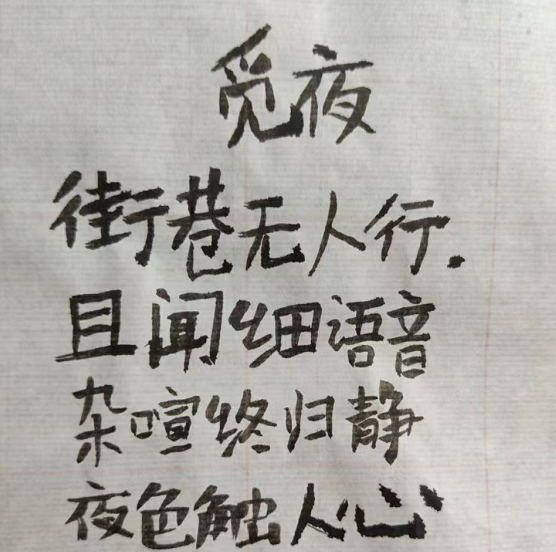 觅夜
街巷无人行.
且闻细语音
杂喧终归静
夜色触人心